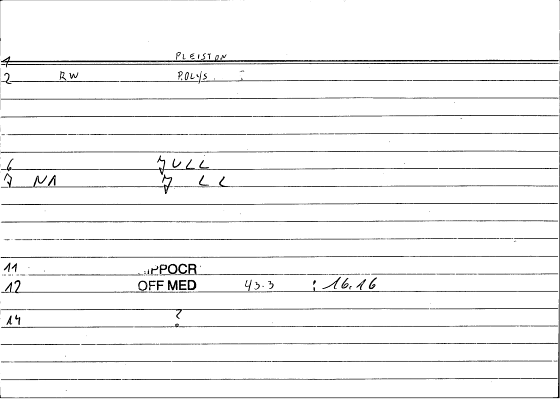 1 PLEISTON
2 RW POLYS :
6 JULL
7 NA J LL
11 IPPOCR
12 OFF MED 43.3 : 16.16
14 ?